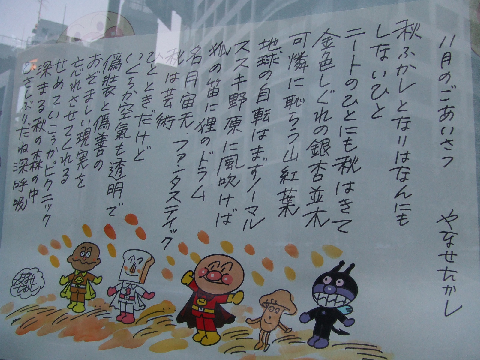 11月のごあいさつ
やなせたかし
秋ふかしとなりはなんにも
しないひと
ニートのひとにも秋はきて
金色しぐれの銀杏並木
可憐に恥らう山紅葉
地球の自転はまずノーマル
ススキ野原に風吹けば
狐の笛に狸のドラム
名月宙天 ファンタスティック
秋は芸術
ひとときだけど
つくづく空氣も透明で
偽装と偽善の
おぞましい現実を
忘れさせてくれる
せめていこうかピクニック
深まる秋の森の中
ひさしぶりだね深呼吸